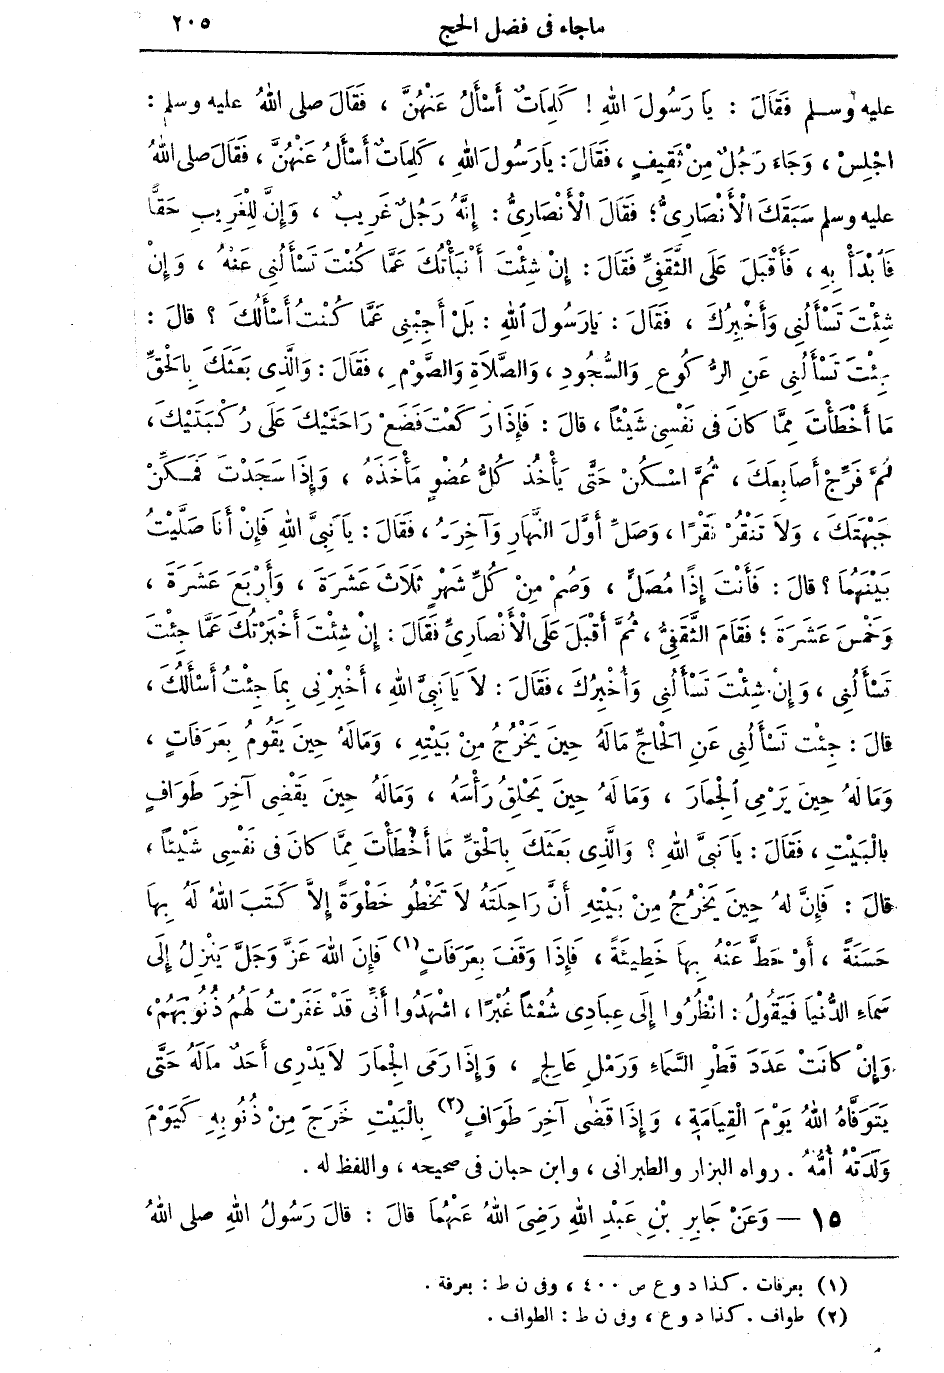 ماجاء فى فضل الحج ٢٠٥
عليه وسلم فَقَالَ : يَا رَسُولَ اللهِ ! كَلِمَاتٌ أَسْأَلُ عَنْهُنَّ ، فَقَالَ صلى اللهُ عليه وسلم :
اجْلِسْ ، وَجَاءَ رَجُلٌ مِنْ ثَقِيفٍ ، فَقَالَ : يَارَسُولَ اللهِ ، كَلِمَاتٌ أَسْأَلُ عَنْهُنَّ ، فَقَالَ صلى اللهُ
عليه وسلم سَبَقَكَ الْأَنْصَارِىُّ ؛ فَقَالَ الْأَنْصَارِىُّ : إِنَّهُ رَجُلٌ غَرِيبٌ ، وَإِنَّ لِلْغَرِيبِ حَقًّا
فَابْدَأْ بِهِ ، فَأَقْبَلَ عَلَى الثَّقَفِىِّ فَقَالَ : إِنْ شِئْتَ أَنْبَأْتُكَ عَمَّا كُنْتَ تَسْأَلُنِى عَنْهُ ، وَإِنْ
شِئْتَ تَسْأَلُنِى وَأُخْبِرُكَ ، فَقَالَ : يَارَسُولَ اللهِ : بَلْ أَجِبْنِى عَمَّا كُنْتُ أَسْأَلُكَ ؟ قالَ :
جِئْتَ تَسْأَلُنِى عَنِ الرُّكُوعِ وَالسُّجُودِ ، وَالصَّلَاةِ وَالصَّوْمِ ، فَقَالَ : وَالَّذِى بَعَثَكَ بِالحَقِّ
مَا أَخْطَأْتَ مِمَّا كانَ فى نَفْسِى شَيْئًا ، قالَ : فَإِذَا رَكَعْتَ فَضَعْ رَاحَتَيْكَ عَلَى رُكْبَتَيْكَ ،
ثُمَّ فَرِّجْ أَصَابِعَكَ ، ثُمَّ اسْكُنْ حَتَّى يَأْخُذَ كُلُّ عُضْوٍ مَأْخَذَهُ ، وَإِذَا سَجَدْتَ فَمَكِّنْ
جَبْهَتَكَ ، وَلَا تَنْقُرْ نَقْرًا ، وَصَلِّ أَوَّلَ النَّهَارِ وَآخِرَهُ ، فَقَالَ : يَا نَبِىَّ اللهِ فَإِنْ أَنَا صَلَّيْتُ
بَيْنَهُمَا ؟ قالَ : فَأَنْتَ إِذًا مُصَلٍّ ، وَصُمْ مِنْ كُلِّ شَهْرٍ ثَلَاثَ عَشَرَةَ ، وَأَرْبَعَ عَشَرَةَ ،
وَخَمْسَ عَشَرَةَ ؛ فَقَامَ الثَّقَفِىُّ ، ثُمَّ أَقْبَلَ عَلَى الْأَنْصَارِىِّ فَقَالَ : إِنْ شِئْتَ أَخْبَرْتُكَ عَمَّا جِئْتَ
تَسْأَلُنِى ، وَإِنْ شِئْتَ تَسْأَلُنِى وَأُخْبِرُكَ ، فَقَالَ : لَا يَا نَبِىَّ اللهِ ، أَخْبِرْنِى بِمَا جِئْتُ أَسْأَلُكَ ،
قالَ : جِئْت تَسْأَلُنِى عَنِ الحَاجِّ مَالَهُ حِينَ يَخْرُجُ مِنْ بَيْتِهِ ، وَمَالَهُ حِينَ يَقُومُ بِعَرَفَاتٍ ،
وَمَا لَهُ حِينَ يَرْمِى الْجِمَارَ ، وَمَا لَهُ حِينَ يَحْلِقُ رَأْسَهُ ، وَمَالَهُ حِينَ يَقْضِى آخِرَ طَوَافٍ
بِالْبَيْتِ ، فَقَالَ : يَا نَبِىَّ اللهِ ؟ وَالَّذِى بَعَثَكَ بِالحَقِّ مَا أَخْطَأْتَ مِمَّا كانَ فى نَفْسِى شَيْئًا ،
قالَ : فَإِنَّ لهُ حِينَ يَخْرُجُ مِنْ بَيْتِهِ أَنَّ رَاحِلَتَهُ لَا تَخْطُو خَطْوَةً إِلَّا كَتَبَ اللهُ لَهُ بِهَا
حَسَنَةً ، أَوْ حَطَّ عَنْهُ بِهَا خَطِيئَةً ، فَإِذَا وَقَفَ بِعَرَفَاتٍ (١) فَإِنَّ اللهَ عَزَّ وَجَلَّ يَنْزِلُ إِلَى
سَمَاءِ الدُّنْيَا فَيَقُولُ : انْظُرُوا إِلَى عِبَادِى شُعْثًا غُبْرًا ، اشْهَدُوا أَنِّى قَدْ غَفَرْتُ لَهُمْ ذُنُوبَهُمْ ،
وَإِنْ كَانَتْ عَدَدَ قَطْرِ السَّمَاءِ وَرَمْلِ عَالِجٍ ، وَإِذَا رَمَى الْجِمَارَ لَايَدْرِى أَحَدٌ مَالَهُ حَتَّى
يَتَوَفَّاهُ اللهُ يَوْمَ الْقِيَامَةِ ، وَإِذَا قَضَى آخِرَ طَوَافٍ (٢) بِالْبَيْتِ خَرَجَ مِنْ ذُنُوبِهِ كَيَوْمَ
وَلَدَتْهُ أُمُّهُ . رواه البزار والطبرانى ، وابن حبان فى صحيحه ، واللفظ له .
١٥ — وَعَنْ جَابِرِ بْنِ عَبْدِ اللهِ رَضِىَ اللهُ عَنْهُمَا قالَ : قالَ رَسُولُ اللهِ صلى اللهُ
(١) بعرفات . كذا د و ع ص ٤٠٠ ، وفى ن ط : بعرفة .
(٢) طواف . كذا د و ع ، وفى ن ط : الطواف .